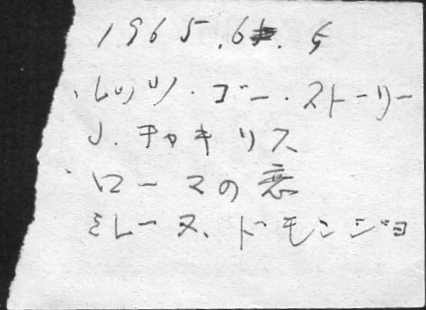 1965.6.5
、レッツ・ゴー・ストーリー
J.チャキリス
、ローマの恋
ミレーヌ、ドモンジョ